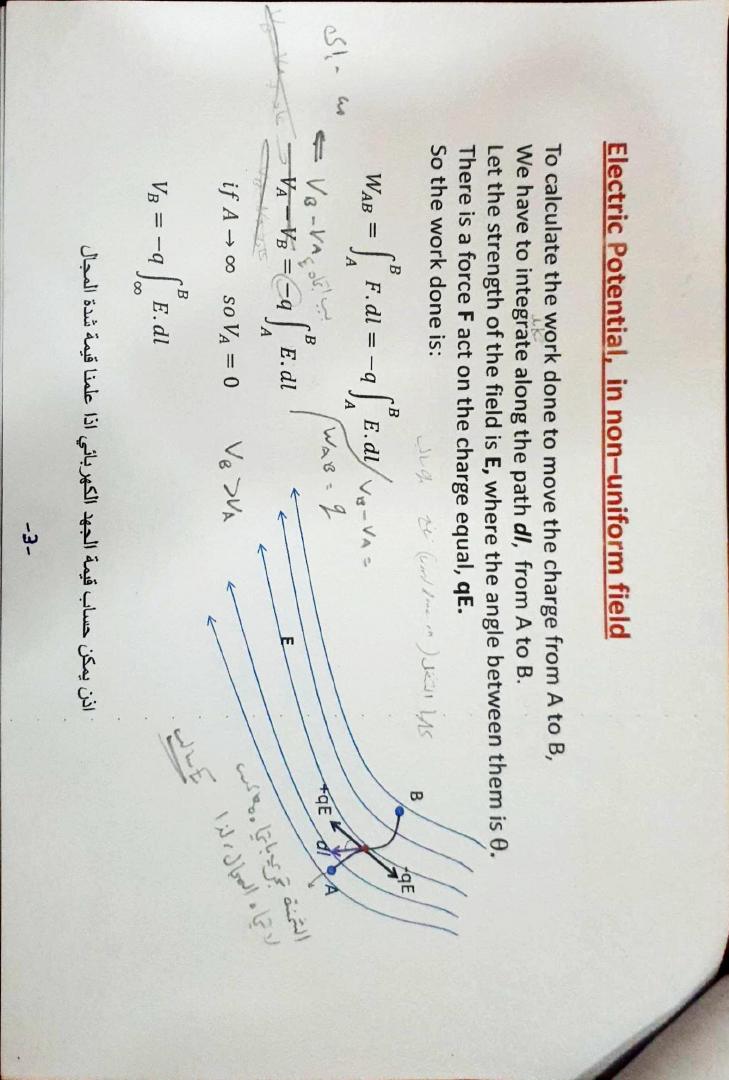 Electric Potential, in non-uniform field
To calculate the work done to move the charge from A to B,
We have to integrate along the path dl, from A to B.
Let the strength of the field is E, where the angle between them is θ.
There is a force F act on the charge equal, qE.
So the work done is:
W_AB = ∫_A^B F.dl = −q ∫_A^B E.dl
V_B - V_A =
W_AB = q
⇐ V_B - V_A
V_A − V_B = −q ∫_A^B E.dl
if A → ∞ so V_A = 0
V_B > V_A
V_B = −q ∫_∞^B E.dl
B
-qE
+qE
dl
A
E
اذن يمكن حساب قيمة الجهد الكهربائي اذا علمنا قيمة شدة المجال
-3-